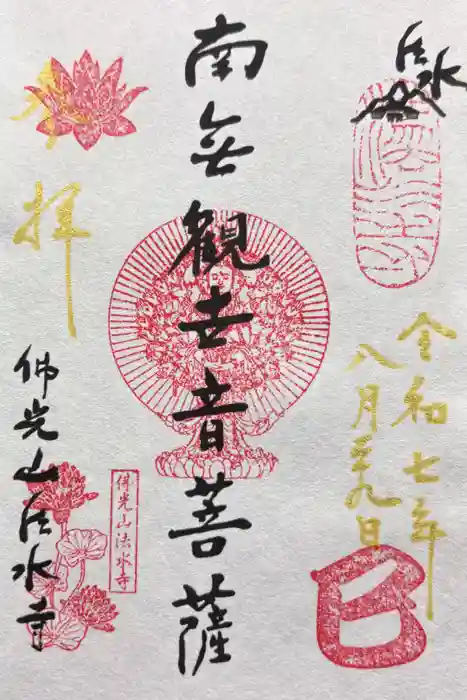 法水
令和七年
八月二十九日
巳
南無觀世音菩薩
奉
拝
佛光山法水寺
佛光山法水寺